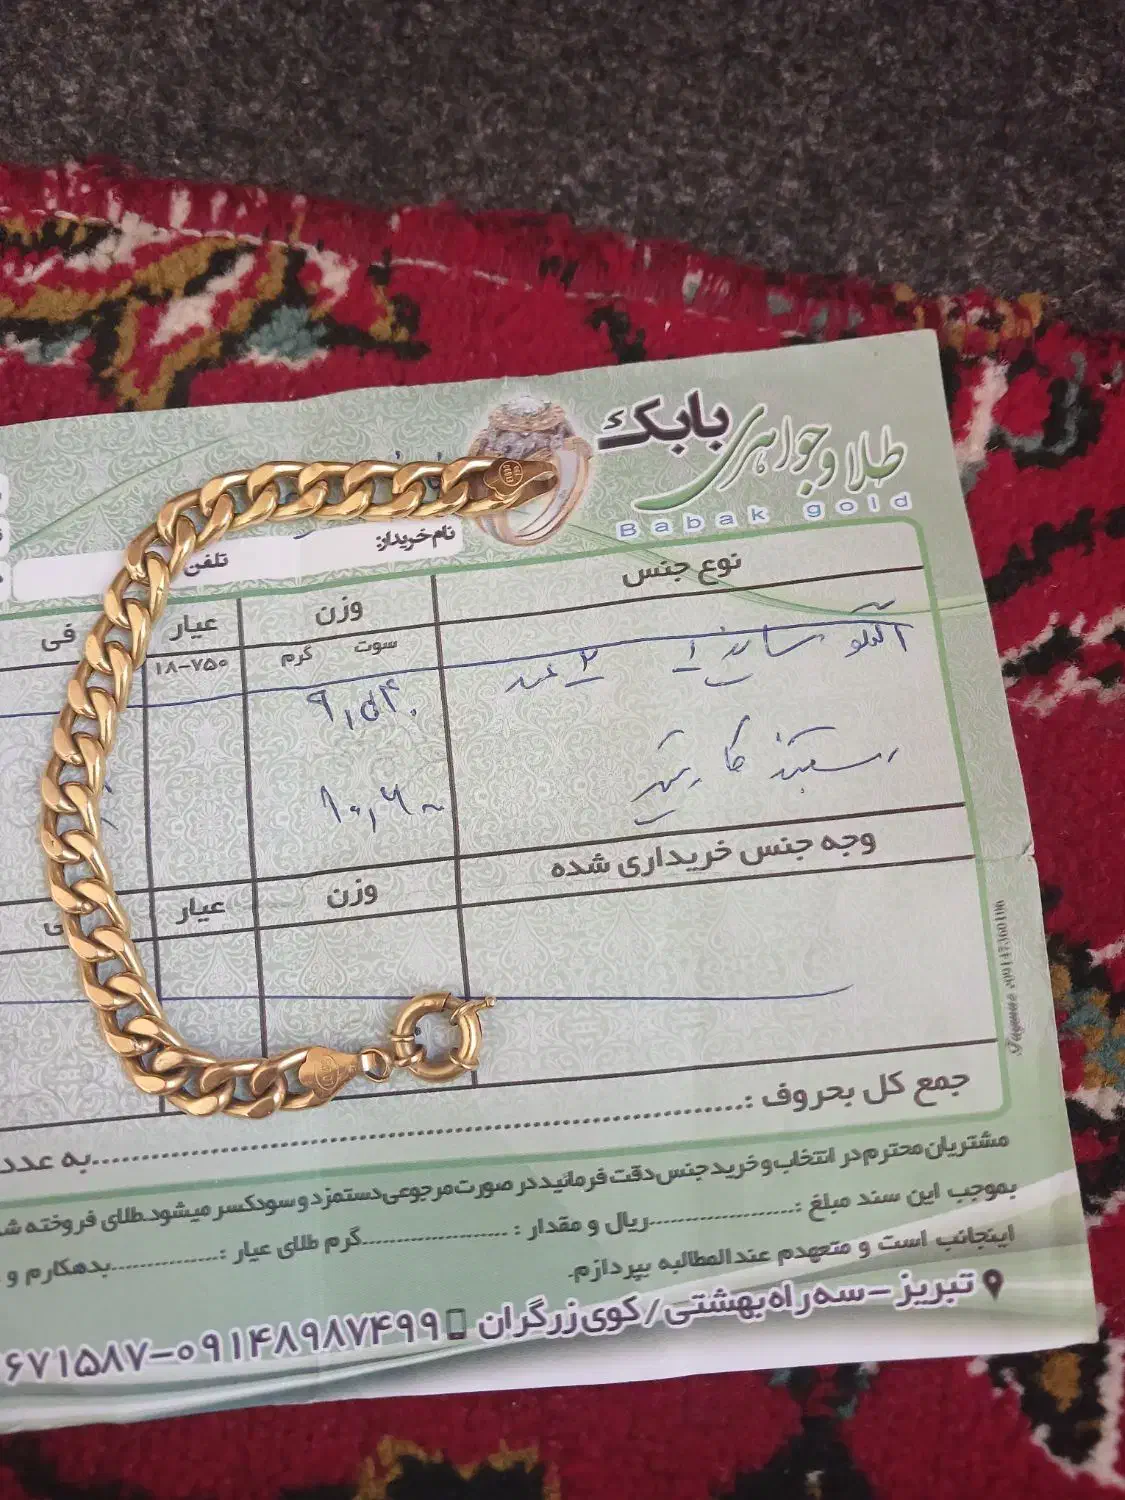 طلا و جواهری بابک
Babak gold
نام خریدار:
تلفن
نوع جنس
وزن
عیار
فی
سوت
گرم
۱۸-۷۵۰
۲ عدد
۹,۵۴۰
۱۰,۶۰۰
وجه جنس خریداری شده
وزن
عیار
جمع کل بحروف :
به عدد
مشتریان محترم در انتخاب و خرید جنس دقت فرمائید در صورت مرجوعی دستمزد و سود کسر میشود. طلای فروخته
بموجب این سند مبلغ : ریال و مقدار : گرم طلای عیار : بدهکارم و
اینجانب است و متعهدم عندالمطالبه بپردازم.
تبریز - سه راه بهشتی / کوی زرگران ۰۹۱۴۸۹۸۷۴۹۹-۶۷۱۵۸۷